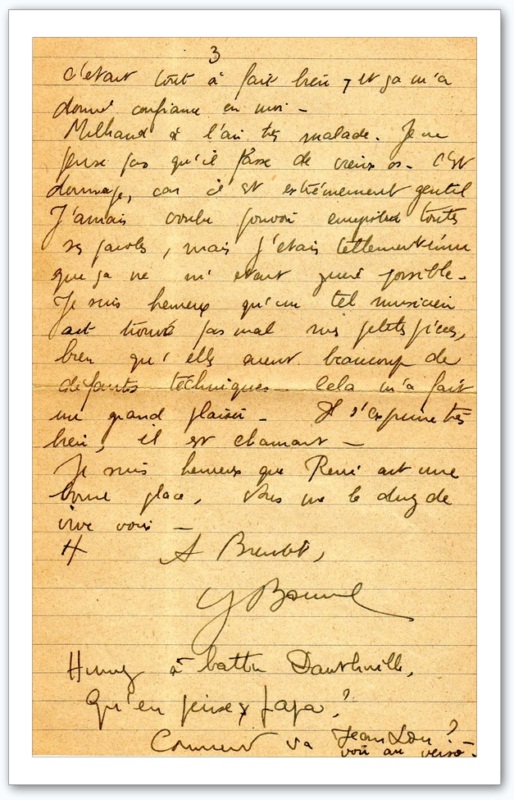 3
c'était tout à fait bien, et ça m'a
donné confiance en moi -
Milhaud a l'air très malade. Je ne
pense pas qu'il fasse de vieux os. C'est
dommage, car il est extrêmement gentil
J'amais voulu pouvoir enregistrer toutes
ses paroles, mais j'étais tellement ému
que ça ne m'était guère possible -
Je suis heureux qu'un tel musicien
ait trouvé pas mal mes petites pièces,
bien qu'elles aient beaucoup de
défauts techniques - Cela m'a fait
un grand plaisir - Il s'exprime très
bien, il est charmant -
Je suis heureux que René ait une
bonne place, vous me le direz de
vive voix -
A Bientôt,
à battu Dauthuille,
Qu'en pense papa ?
Comment va Jean Lou ?
voir au verso -